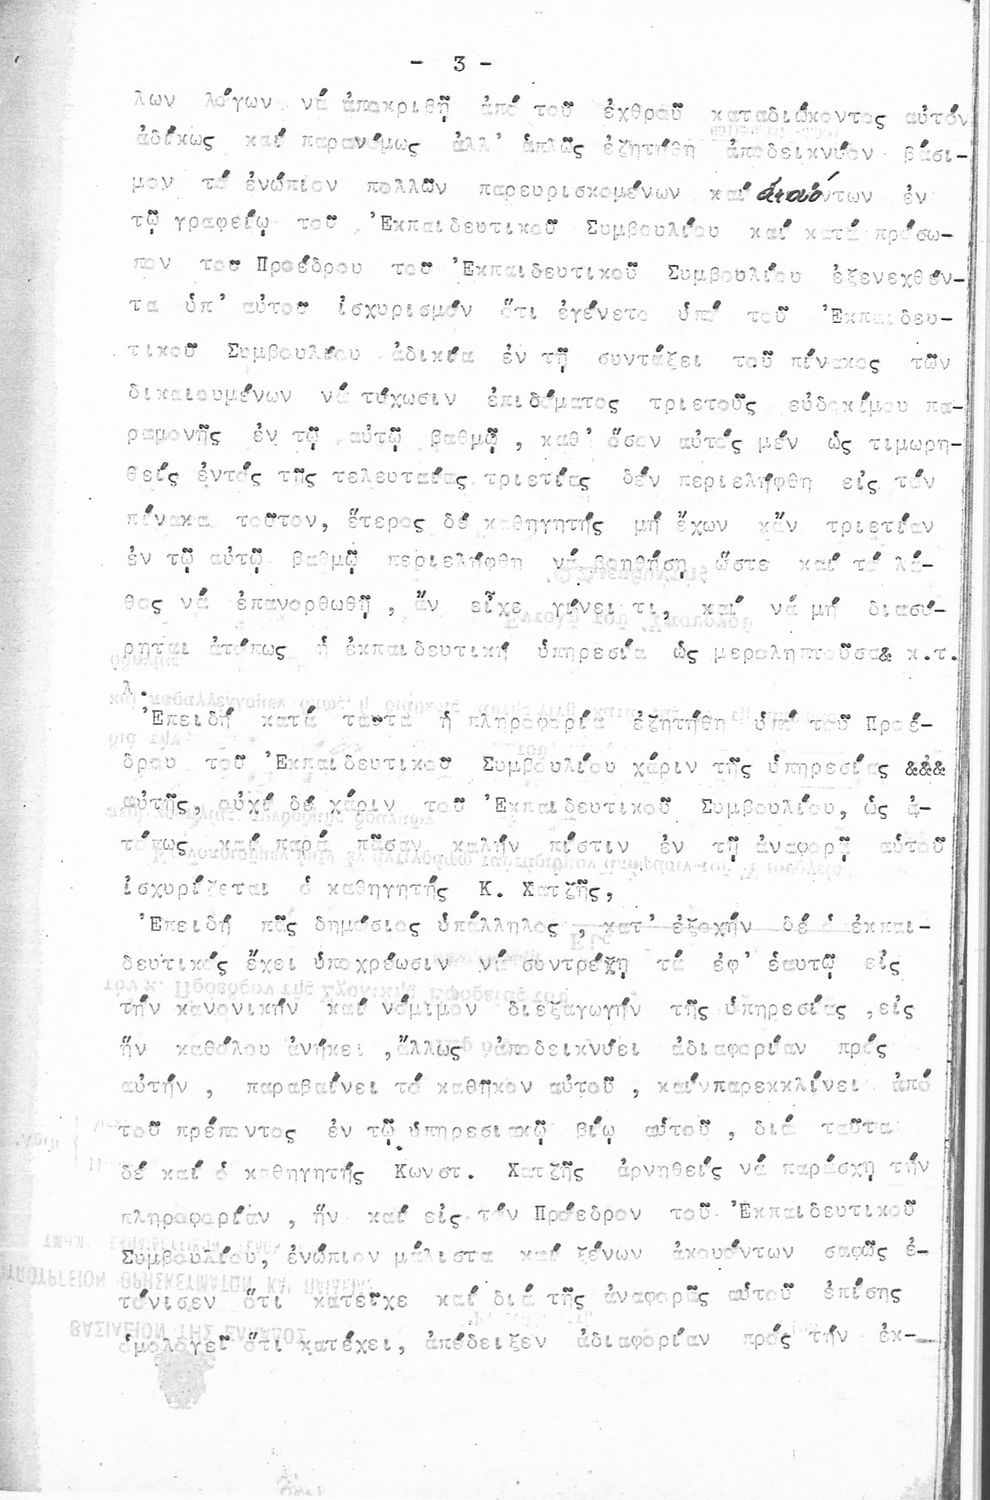 - 3 -
λων λόγων νά ἀποκριβῇ ἀπό τοῦ ἐχθροῦ καταδιώκοντος αὐτόν
ἀδίκως καί παρανόμως ἀλλ' ἁπλῶς ἐζητήθη ἀποδεικνύον βάσι-
μον τό ἐνώπιον πολλῶν παρευρισκομένων καί ἀκουόντων ἐν
τῷ γραφείῳ τοῦ Ἐκπαιδευτικοῦ Συμβουλίου καί κατά πρόσω-
πον τοῦ Προέδρου τοῦ Ἐκπαιδευτικοῦ Συμβουλίου ἐξενεχθέν-
τα ὑπ' αὐτοῦ ἰσχυρισμόν ὅτι ἐγένετο ὑπό τοῦ Ἐκπαιδευ-
τικοῦ Συμβουλίου ἀδικία ἐν τῇ συντάξει τοῦ πίνακος τῶν
δικαιουμένων νά τύχωσιν ἐπιδόματος τριετοῦς εὐδοκίμου πα-
ραμονῆς ἐν τῷ αὐτῷ βαθμῷ , καθ' ὅσον αὐτός μέν ὡς τιμωρη-
θείς ἐντός τῆς τελευταίας τριετίας δέν περιελήφθη εἰς τόν
πίνακα τοῦτον, ἕτερος δέ καθηγητής μή ἔχων κἄν τριετίαν
ἐν τῷ αὐτῷ βαθμῷ περιελήφθη νά βοηθήσῃ ὥστε καί τό λά-
θος νά ἐπανορθωθῇ , ἄν εἶχε γίνει τι, καί νά μή διασύ-
ρηται ἀτόπως ἡ ἐκπαιδευτική ὑπηρεσία ὡς μεροληπτοῦσα& κ.τ.
λ.
Ἐπειδή κατά ταῦτα ἡ πληροφορία ἐζητήθη ὑπό τοῦ Προέ-
δρου τοῦ Ἐκπαιδευτικοῦ Συμβουλίου χάριν τῆς ὑπηρεσίας &&&
αὐτῆς, οὐχί δέ χάριν τοῦ Ἐκπαιδευτικοῦ Συμβουλίου, ὡς ἀ-
τόπως καί παρά πᾶσαν καλήν πίστιν ἐν τῇ ἀναφορᾷ αὐτοῦ
ἰσχυρίζεται ὁ καθηγητής Κ. Χατζῆς,
Ἐπειδή πᾶς δημόσιος ὑπάλληλος , κατ' ἐξοχήν δέ ὁ ἐκπαι-
δευτικός ἔχει ὑποχρέωσιν νά συντρέχῃ τό ἐφ' ἑαυτῷ εἰς
τήν κανονικήν καί νόμιμον διεξαγωγήν τῆς ὑπηρεσίας ,εἰς
ἥν καθόλου ἀνήκει ,ἄλλως ἀποδεικνύει ἀδιαφορίαν πρός
αὐτήν , παραβαίνει τό καθῆκον αὐτοῦ , καίνπαρεκκλίνει ἀπό
τοῦ πρέποντος ἐν τῷ ὑπηρεσιακῷ βίῳ αὐτοῦ , διά ταῦτα
δέ καί ὁ καθηγητής Κωνστ. Χατζῆς ἀρνηθείς νά παράσχῃ τήν
πληροφορίαν , ἥν καί εἰς τόν Πρόεδρον τοῦ Ἐκπαιδευτικοῦ
Συμβουλίου, ἐνώπιον μάλιστα καί ξένων ἀκουόντων σαφῶς ἐ-
τόνισεν ὅτι κατεῖχε καί διά τῆς ἀναφορᾶς αὐτοῦ ἐπίσης
ὁμολογεῖ ὅτι κατέχει, ἀπέδειξεν ἀδιαφορίαν πρός τήν ἐκ-